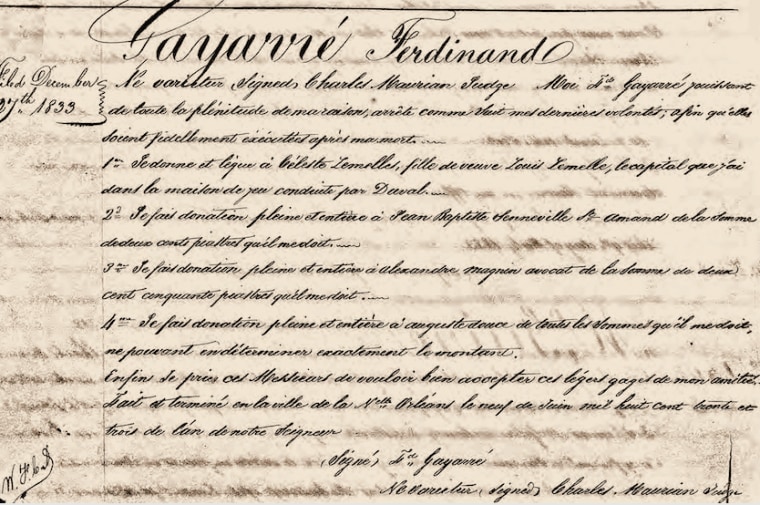 Gayarré Ferdinand
Filed December
27th 1833
Ne varietur, (Signed) Charles Maurian Judge Moi Fd Gayarré jouissant
de toute la plénitude de ma raison, arrête comme suit mes dernières volontés, afin qu'elles
soient fidellement exécutées après ma mort.
1er Je donne et lègue à Céleste Lemelles, fille de veuve Louis Lemelle, le capital que j'ai
dans la maison de jeu conduite par Duval.
2d Je fais donation pleine et entière à Jean Baptiste Senneville St Amand de la somme
de deux cents piastres qu'il me doit.
3me Je fais donation pleine et entière à Alexandre Magnin avocat de la somme de deux
cent cinquante piastres qu'il me doit.
4me Je fais donation pleine et entière à auguste douce de toutes les sommes qu'il me doit,
ne pouvant en déterminer exactement le montant.
Enfin Je prie ces Messieurs de vouloir bien accepter ces légers gages de mon amitié.
Fait et terminé en la ville de la Nelle Orléans le neuf de Juin mil huit cent trente et
trois de l'an de notre Seigneur
(Signé) Fd Gayarré
Ne varietur, (signed) Charles Maurian Judge